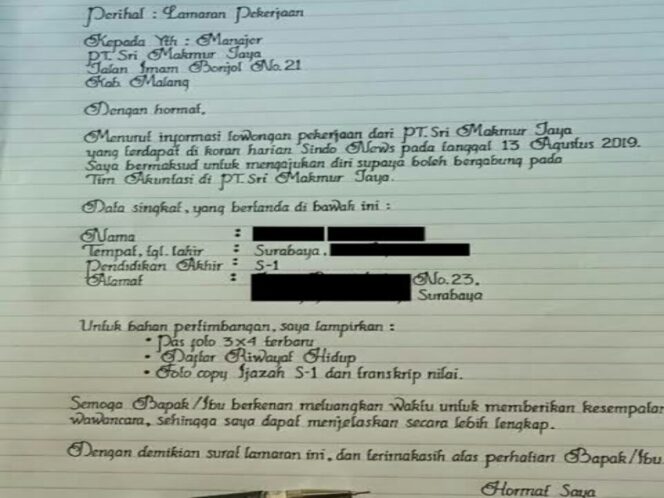 Perihal : Lamaran Pekerjaan
Kepada Yth : Manajer
PT. Sri Makmur Jaya
Jalan Imam Bonjol No. 21
Kab Malang
Dengan hormat,
Menurut informasi lowongan pekerjaan dari PT. Sri Makmur Jaya
yang terdapat di koran harian Sindo News pada tanggal 13 Agustus 2019.
Saya bermaksud untuk mengajukan diri supaya boleh bergabung pada
Tim Akuntasi di PT. Sri Makmur Jaya.
Data singkat, yang bertanda di bawah ini :
Nama :
Tempat, tgl. lahir : Surabaya,
Pendidikan Akhir : S-1
Alamat : No. 23,
Surabaya
Untuk bahan pertimbangan, saya lampirkan :
• Pas foto 3x4 terbaru
• Daftar Riwayat Hidup
• Foto copy Ijazah S-1 dan transkrip nilai.
Semoga Bapak/Ibu berkenan meluangkan waktu untuk memberikan kesempatan
wawancara, sehingga saya dapat menjelaskan secara lebih lengkap.
Dengan demikian surat lamaran ini, dan terimakasih atas perhatian Bapak/Ibu.
Hormat Saya